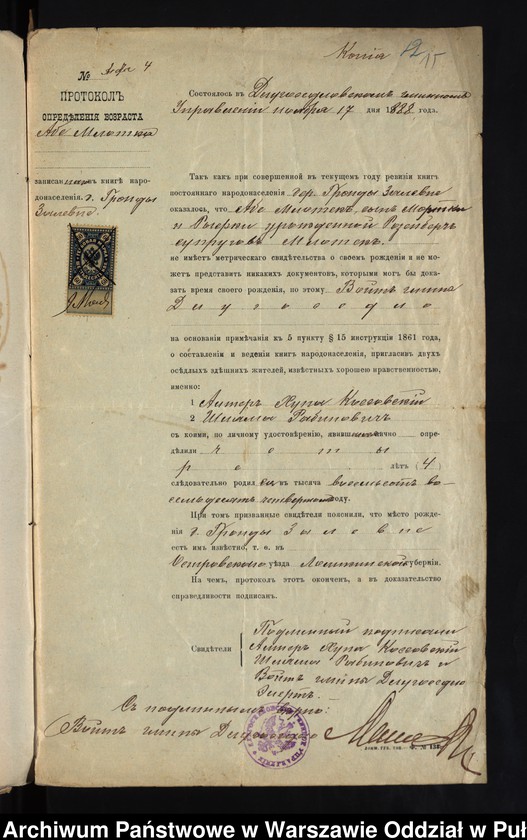 Копія
№ 4
ПРОТОКОЛЪ
ОПРЕДѢЛЕНІЯ ВОЗРАСТА
Абе Млотка
записан въ книгѣ наро-
донаселенія д. Гронды
Залевне
Состоялось въ Длугоседловскомъ гминномъ
Управленіи ноября 17 дня 1888 года.
Такъ какъ при совершенной въ текущемъ году ревизіи книгъ
постояннаго народонаселенія дер. Гронды Залевне
оказалось, что Абе Млотекъ сынъ
и урожденной
супруговъ Млотекъ.
не имѣетъ метрическаго свидѣтельства о своемъ рожденіи и не мо-
жетъ представить никакихъ документовъ, которыми могъ бы дока-
зать время своего рожденія, по этому Войтъ гмины
Длугоседло
на основаніи примѣчанія къ 5 пункту § 15 инструкціи 1861 года,
о составленіи и веденіи книгъ народонаселенія, пригласивъ двухъ
осѣдлыхъ здѣшнихъ жителей, извѣстныхъ хорошею нравственностью,
именно:
1 Авторъ Хупа Коссовскій
2 Шляма Рабиновичъ
съ коими, по личному удостовѣренію, лично опре-
дѣлили четы
ре лѣтъ (4)
слѣдовательно родился въ тысяча восемьсотъ во-
семьдесятъ четвертомъ году.
При томъ призванные свидѣтели пояснили, что мѣсто рожде-
нія д. Гронды Залевне
есть имъ извѣстно, т. е. въ
Островскаго уѣзда Ломжинской губерніи.
На чемъ, протоколъ этотъ оконченъ, а въ доказательство
справедливости подписанъ.
Свидѣтели
Подлинный подписали
Авторъ Хупа Коссовскій
Шляма Рабиновичъ и
Войтъ гмины Длугоседло
Съ подлиннымъ вѣрно:
Войтъ гмины Длугоседло
Archiwum Państwowe w Warszawie Oddział w Puł